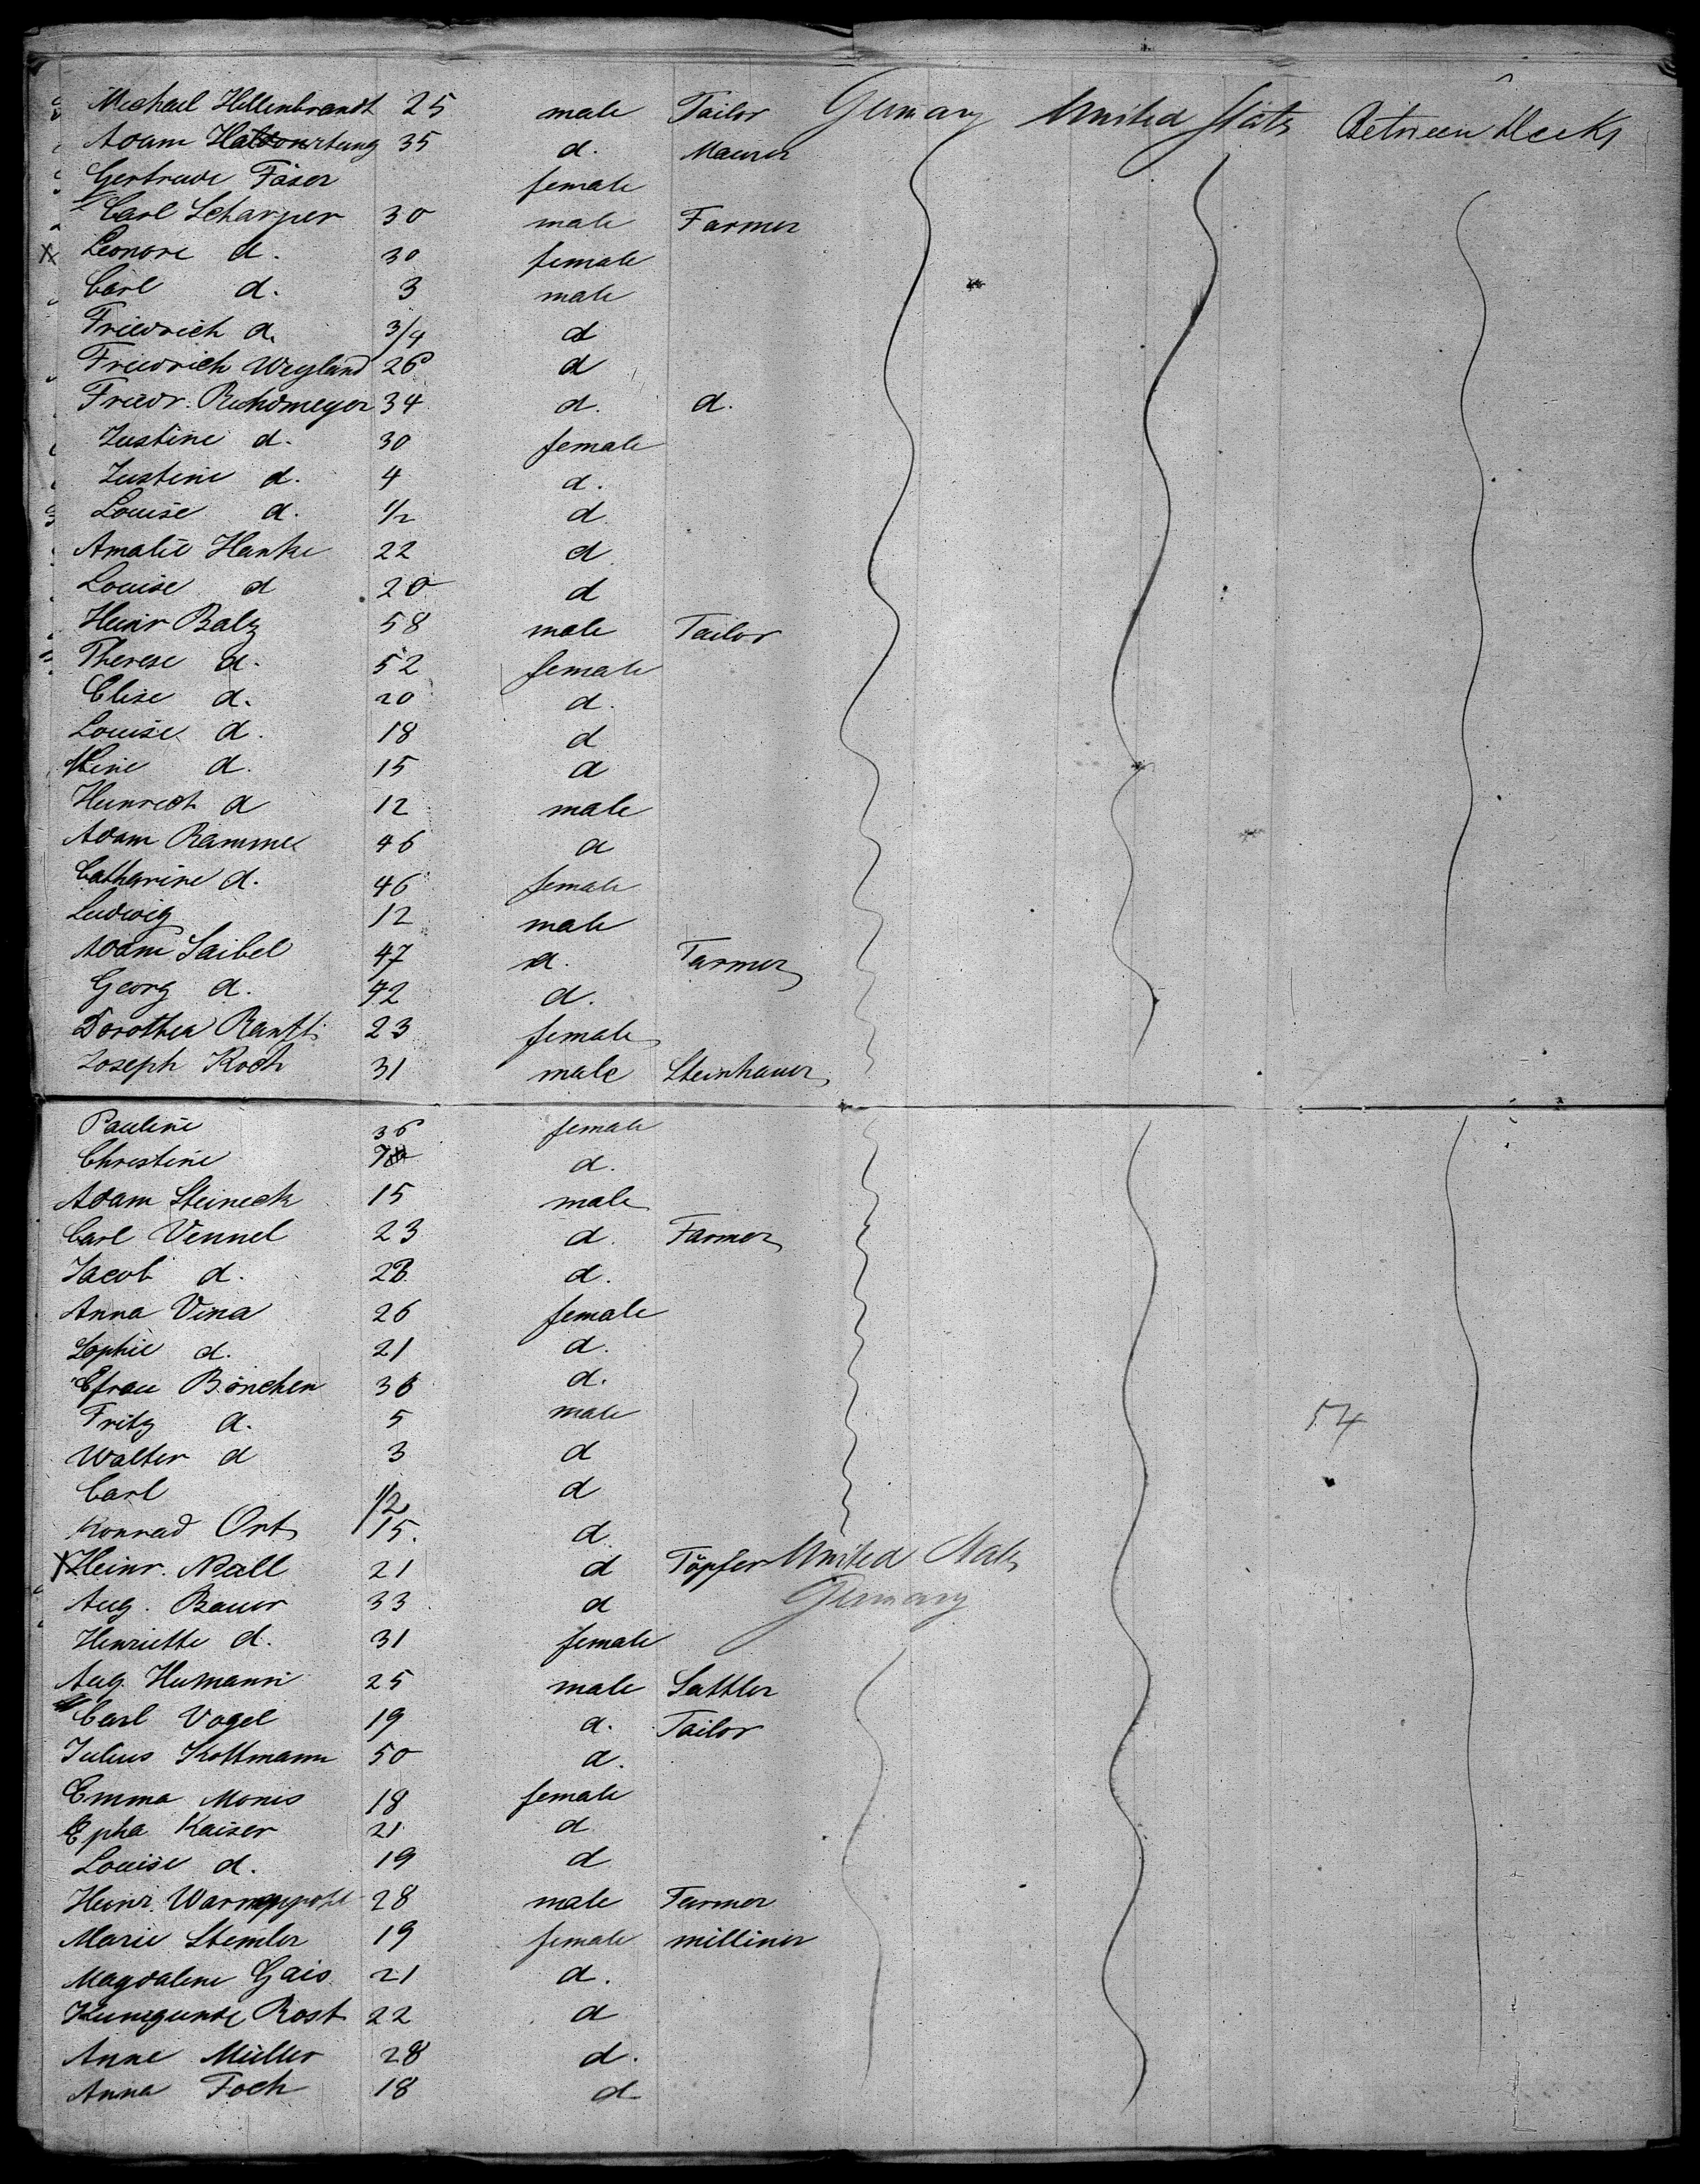 Michael Hillenbrandt 25 male Tailor Germany United States Between Decks
Adam 35 d. Maurer
Gertrude Fäser female
Carl Scharper 30 male Farmer
X Leonore d. 30 female
Carl d. 3 male
Friedrich d. 3/4 d
Friedrich Weyland 26 d
Friedr. Ruhdmeyer 34 d. d.
Justine d. 30 female
Justine d. 4 d.
Louise d. 1/2 d
Amalie Hanke 22 d
Louise d 20 d
Heinr Balz 58 male Tailor
Therese d. 52 female
Elise d. 20 d.
Louise d. 18 d
Line d. 15 d
Heinrich d 12 male
Adam Ramme 46 d
Catharine d. 46 female
Ludwig 12 male
Adam Saibel 47 d. Farmer
Georg d. 42 d.
Dorothea Ranft 23 female
Joseph Koch 31 male Steinhauer
Pauline 36 female
Christine d.
Adam Steineck 15 male
Carl Vennel 23 d. Farmer
Jacob d. 23 d.
Anna Vina 26 female
Sophie d. 21 d.
Efrau Bönchen 36 d.
Fritz d. 5 male
Walter d 3 d
Carl 1/2 d
Konrad Ort 15. d
X Heinr. Nall 21 d Töpfer United States
Aug. Bauer 33 d Germany
Henriette d. 31 female
Aug. Humann 25 male Sattler
Carl Vogel 19 d. Tailor
Julius Kottmann 50 d.
Emma Monis 18 female
Epha Kaiser 21 d
Louise d. 19 d
Heinr. 28 male Farmer
Marie Stemler 19 female milliner
Magdalene Gais 21 d.
Kunigunde Rost 22 d
Anne Müller 28 d.
Anna Foch 18 d
54